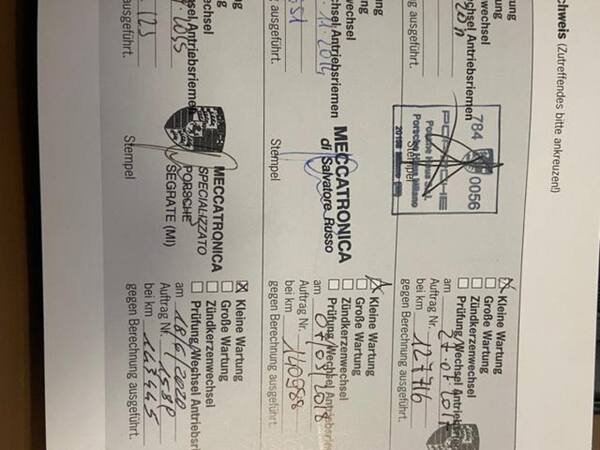 chweis (Zutreffendes bitte ankreuzen!)
Wartung
wechsel
chsel Antriebsriemen
ausgeführt.
784 0056
PORSCHE
Porsche Haus S.r.l.
Stempel
Kleine Wartung
Große Wartung
Zündkerzenwechsel
Prüfung/Wechsel Antriebsri
am 27.07.2017
Auftrag Nr.
bei km 127716
gegen Berechnung ausgeführt.
Wartung
wechsel
chsel Antriebsriemen
11.2014
ausgeführt.
MECCATRONICA
di Salvatore Russo
Stempel
Kleine Wartung
Große Wartung
Zündkerzenwechsel
Prüfung/Wechsel Antriebsri
am 07/03/2018
Auftrag Nr.
bei km 140988
gegen Berechnung ausgeführt.
Wartung
wechsel
sel Antriebsriemen
2015
123
ausgeführt.
MECCATRONICA
SPECIALIZZATO
PORSCHE
SEGRATE (MI)
Stempel
Kleine Wartung
Große Wartung
Zündkerzenwechsel
Prüfung/Wechsel Antriebsri
am 18/6/2020
Auftrag Nr.
bei km 143445
gegen Berechnung ausgeführt.